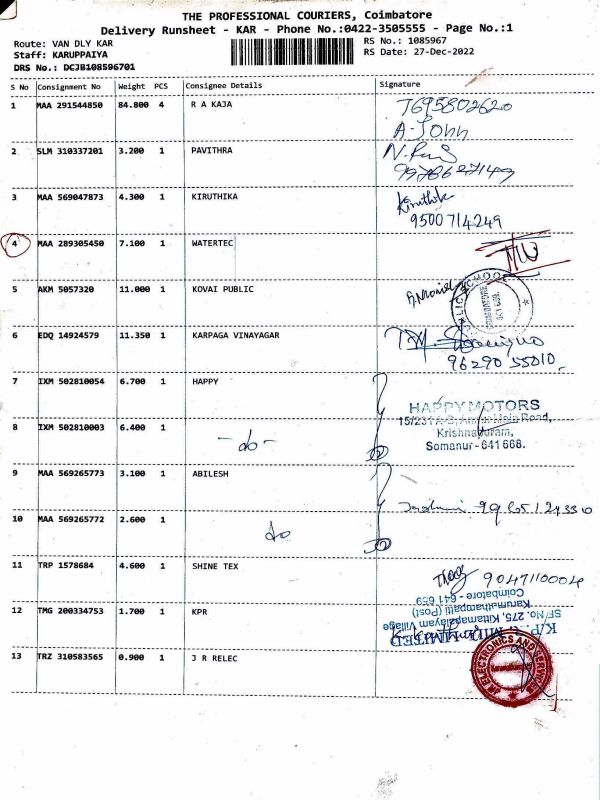 THE PROFESSIONAL COURIERS, Coimbatore
Delivery Runsheet - KAR - Phone No.:0422-3505555 - Page No.:1
Route: VAN DLY KAR
Staff: KARUPPAIYA
DRS No.: DCJB108596701
RS No.: 1085967
RS Date: 27-Dec-2022
S No Consignment No Weight PCS Consignee Details Signature
1 MAA 291544850 84.800 4 R A KAJA 7695802620
A-John
2 SLM 310337201 3.200 1 PAVITHRA
3 MAA 569047873 4.300 1 KIRUTHIKA Kiruthik
9500714249
4 MAA 289305450 7.100 1 WATERTEC
5 AKM 5057320 11.000 1 KOVAI PUBLIC
6 EDQ 14924579 11.350 1 KARPAGA VINAYAGAR
96290 55010
7 IXM 502810054 6.700 1 HAPPY
HAPPY MOTORS
Main Road,
8 IXM 502810003 6.400 1 - do -
Krishnapuram,
Somanur - 641 668.
9 MAA 569265773 3.100 1 ABILESH
10 MAA 569265772 2.600 1 do
11 TRP 1578684 4.600 1 SHINE TEX 9047110004
12 TMG 200334753 1.700 1 KPR
SF/No. 275, Kittampalayam Village
Karumathampatti (Post)
Coimbatore - 641 659
13 TRZ 310583565 0.900 1 J R RELEC
JR ELECTRONICS AND SERVICES